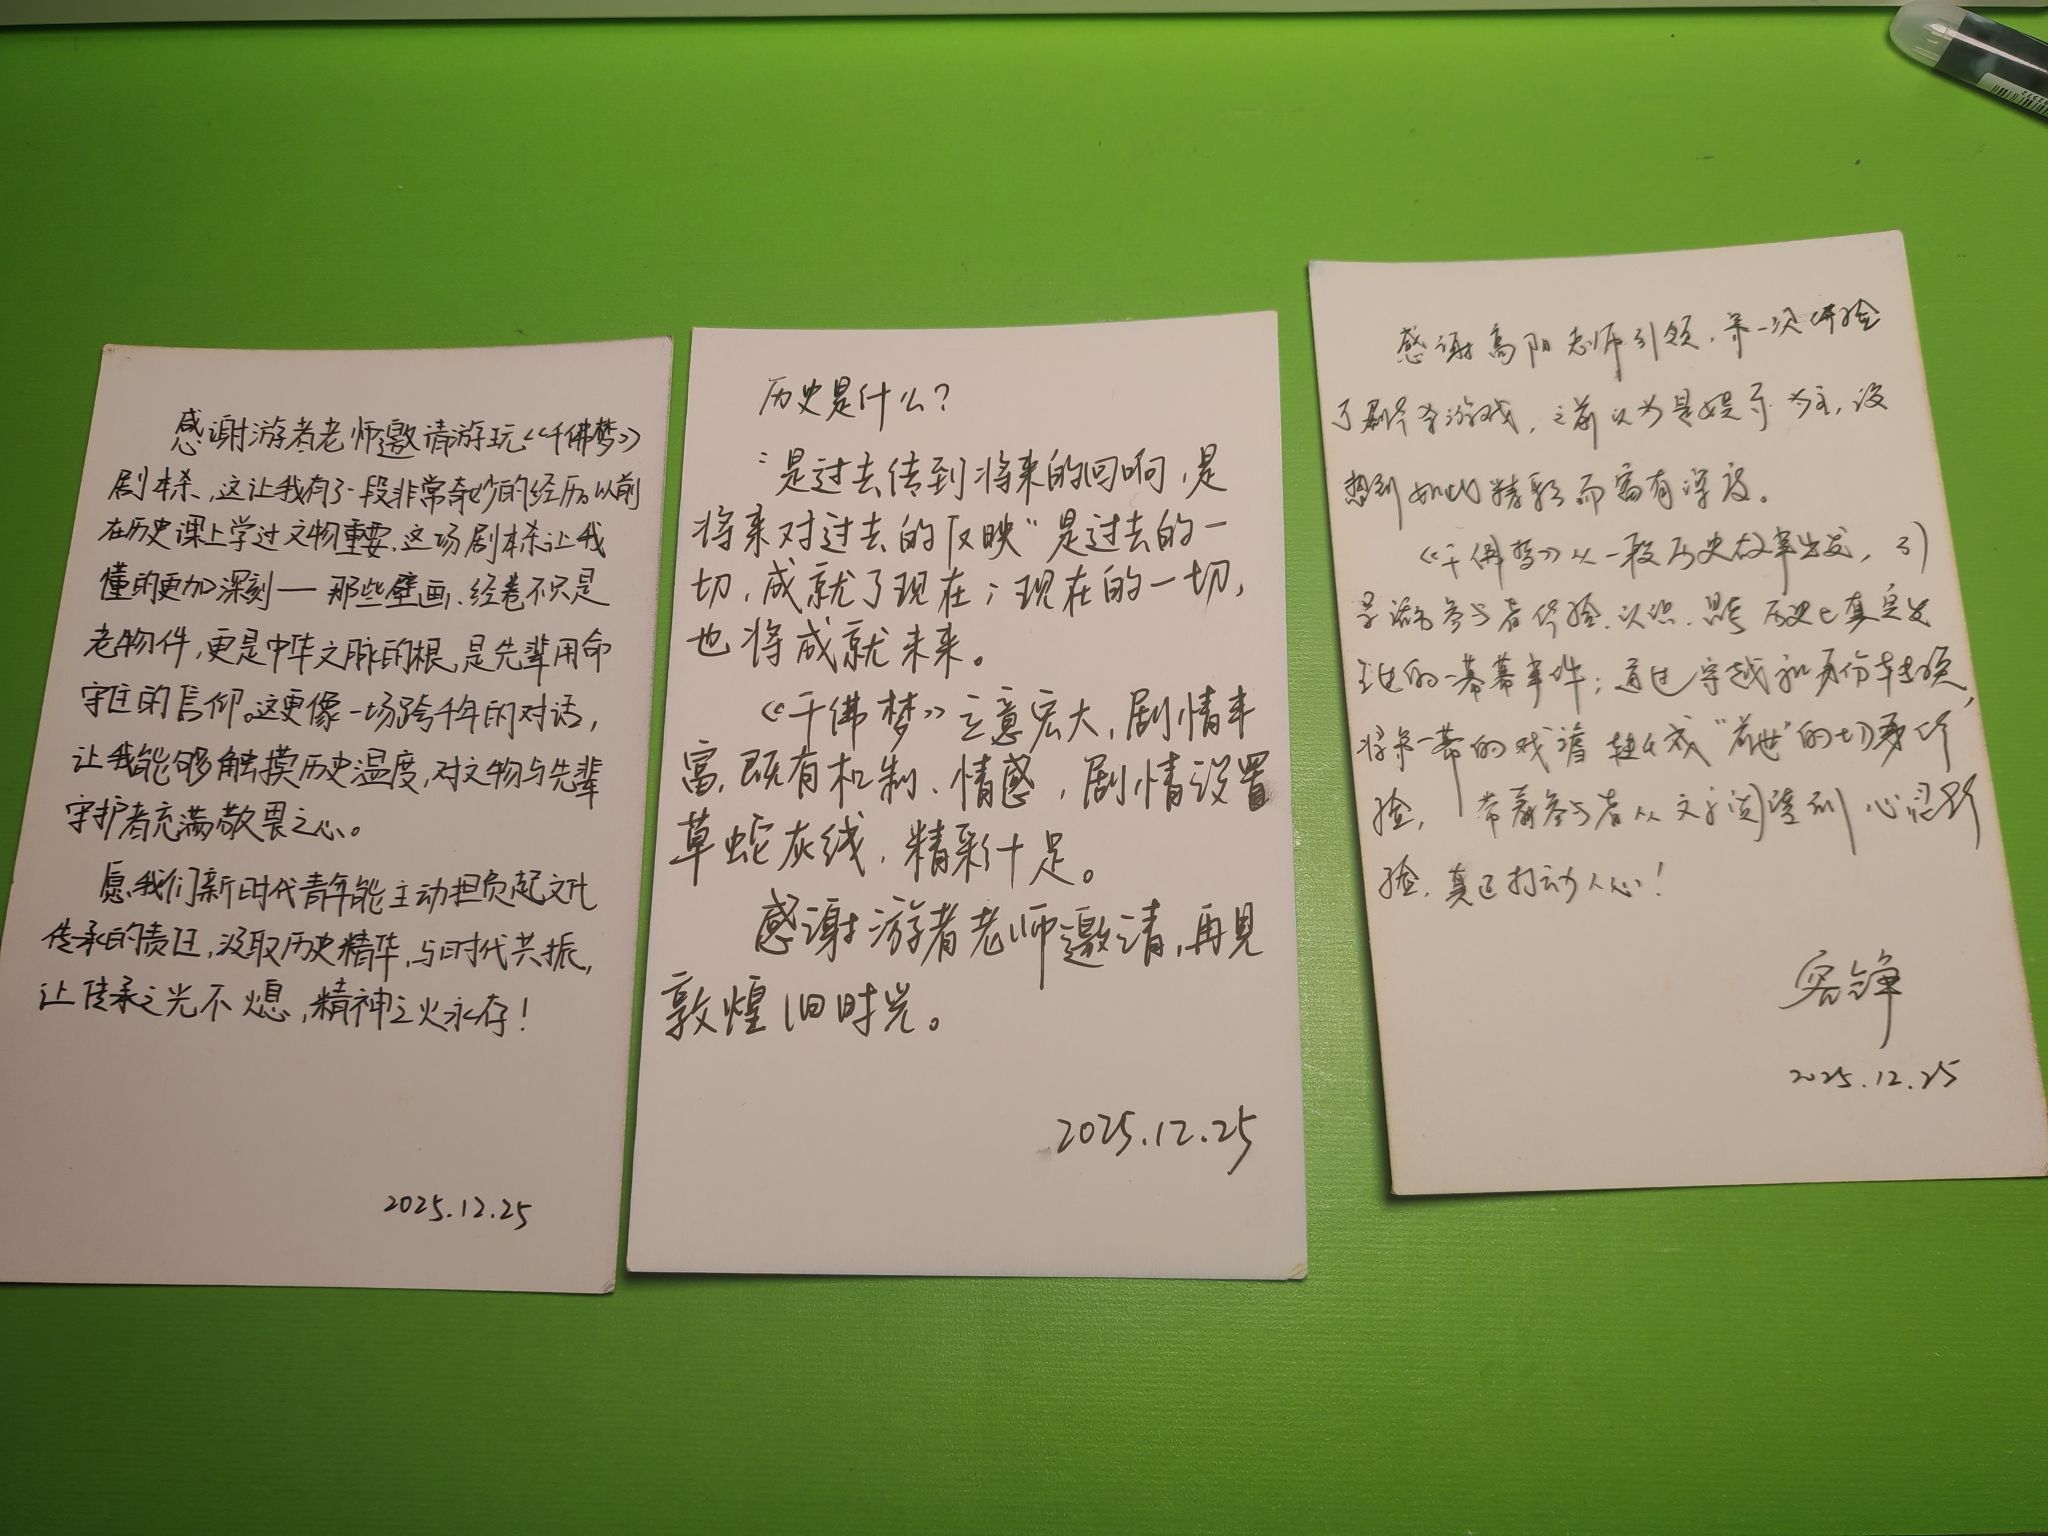 感谢游者老师邀请游玩《千佛梦》
剧本杀，这让我有了一段非常奇妙的经历。以前
在历史课上学过文物重要，这场剧本杀让我
懂的更加深刻——那些壁画、经卷不只是
老物件，更是中华文脉的根，是先辈用命
守住的信仰。这更像一场跨千年的对话，
让我能够触摸历史温度，对文物与先辈
守护者充满敬畏之心。
愿我们新时代青年能主动担负起文化
传承的责任，汲取历史精华，与时代共振，
让传承之光不熄，精神之火永存！
2025.12.25
历史是什么？
"是过去传到将来的回响，是
将来对过去的反映"是过去的一
切，成就了现在；现在的一切，
也将成就未来。
《千佛梦》立意宏大，剧情丰
富，既有机制、情感，剧情设置
草蛇灰线，精彩十足。
感谢游者老师邀请，再见
敦煌旧时光。
2025.12.25
感谢高阳老师引领，第一次体验
了剧本杀游戏，之前以为是娱乐为主，没
想到如此精彩而富有深度。
《千佛梦》以一段历史故事出发，引
导游参与者体验、认识、思考历史上真实发
生过的一幕幕事件；通过穿越和身份转换，
将第一幕的戏谱转化成"前世"的切身体
验，带着参与者从文字阅读到心灵体
验，真正打动人心！
2025.12.25